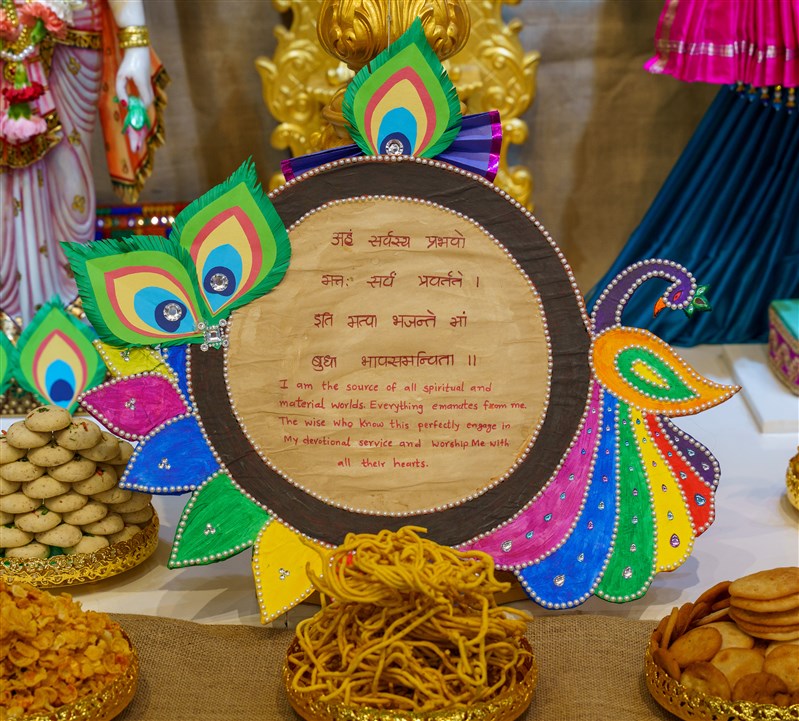 अहं सर्वस्य प्रभवो
मत्तः सर्वं प्रवर्तते ।
इति मत्वा भजन्ते मां
बुधा भावसमन्विता ।।
I am the source of all spiritual and
material worlds. Everything emanates from me
The wise who know this perfectly engage in
My devotional service and worship Me with
all their hearts.